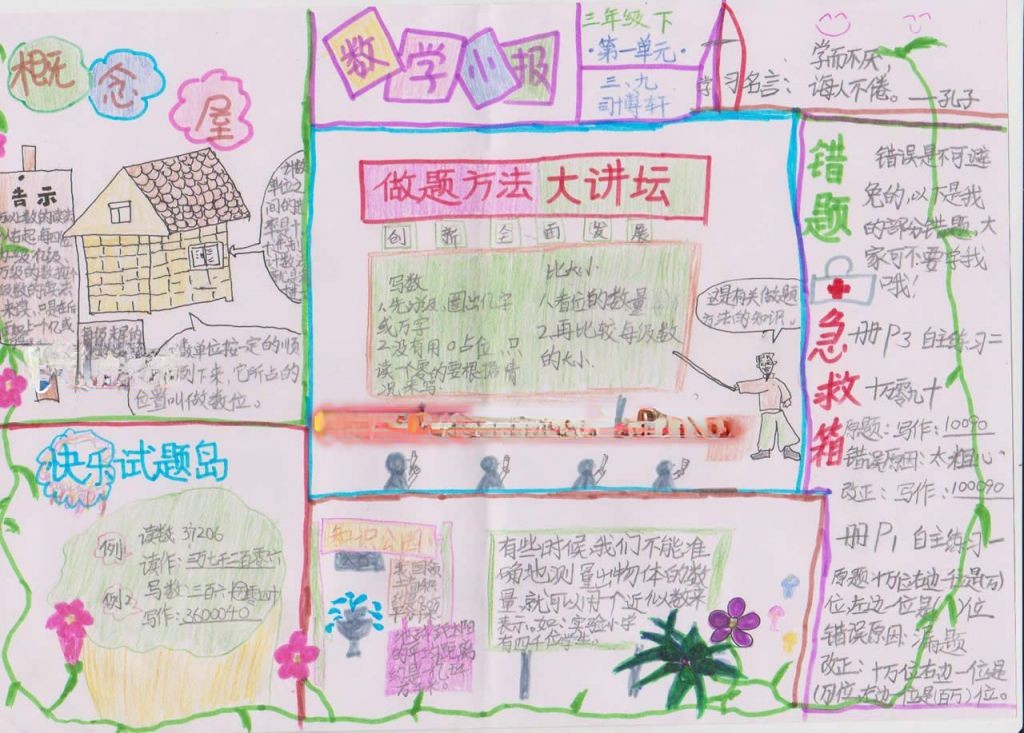 概念屋
告示
位置叫做数位。
数学小报
三年级下
·第一单元·
三、九
司博轩
学习名言:
学而不厌,
诲人不倦。——孔子
做题方法大讲坛
创新全面发展
写数
1.先分级,圈出亿字
或万字
2.没有用0占位,只
读一个零的要根据情
况来写
比大小
1.看位的数量
2.再比较每级数
的大小.
这是有关做题
方法的知识。
错题急救箱
错误是不可避
免的,以下是我
的部分错题,大
家可不要学我
哦!
一册P3 自主练习二
十万零九十
原题:写作:10090
错误原因:太粗心
改正:写作:100090
一册P1 自主练习一
原题:十万位右边一位是(万)
位,左边一位是( )位
错误原因:漏题
改正:十万位右边一位是
(万)位,左边一位是(百万)位。
快乐试题岛
例1 读数:37206
读作:三万七千二百零六
例2 写数:三百六十万零四十
写作:3600040
知识公园
有些时候,我们不能准
确地测量出物体的数
量,就可以用一个近似数来
表示。如:实验小学
有四千位学生。